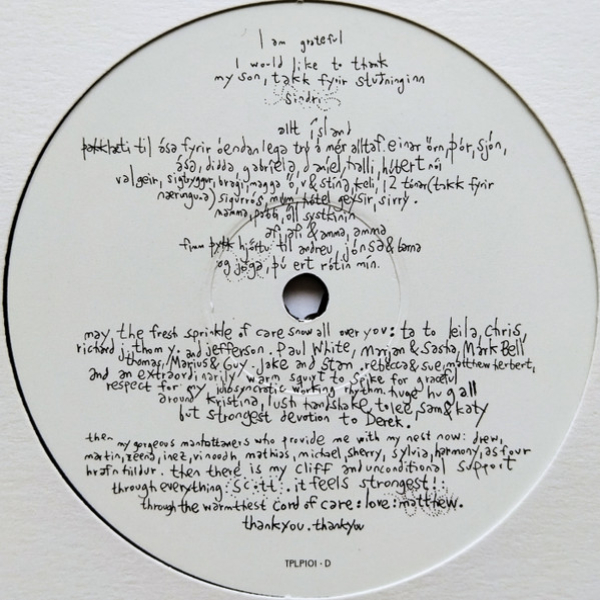 I am grateful
I would like to thank
my son, takk fyrir stuðninginn
sindri
allt ísland
þakklæti til ása fyrir óendanlega trú á mér alltaf. einar örn, þór, sjón,
ása, didda, gabríela, daníel, halli, húbert nói
valgeir, sigtryggur, bragi, magga ö, v & stína, keli, 12 tónar (takk fyrir
næringuna) sigurrós, múm, hótel geysir, sirrý.
mamma, pabbi, öll systkinin
afi, afi & amma, amma
fimm þykk hjörtu til andreu, jónsa & barna
og jóga, þú ert rótin mín.
may, the fresh sprinkle of care snow all over you: ta to leila, chris,
richard j. thom y. and jefferson. Paul White, Marjan & Sasha, Mark Bell
thomas, Marius & Guy. Jake and Stan, rebecca & sue, matthew herbert,
and an extraordinarily warm squirt to Spike for graceful
respect for my idiosyncratic working rhythm. huge hug all
around kristina, lush handshake to lee, sam & katy
but strongest devotion to Derek.
then my gorgeous manhattaners who provide me with my nest now: drew,
martin, reena, inez, vinoodh, mathias, michael, sherry, sylvia, harmony, as four
hrafnhildur. then there is my cliff and unconditional support
through everything: scott. it feels strongest!:
through the warmthest cord of care: love: matthew.
thankyou. thankyou
TPLP101 - D